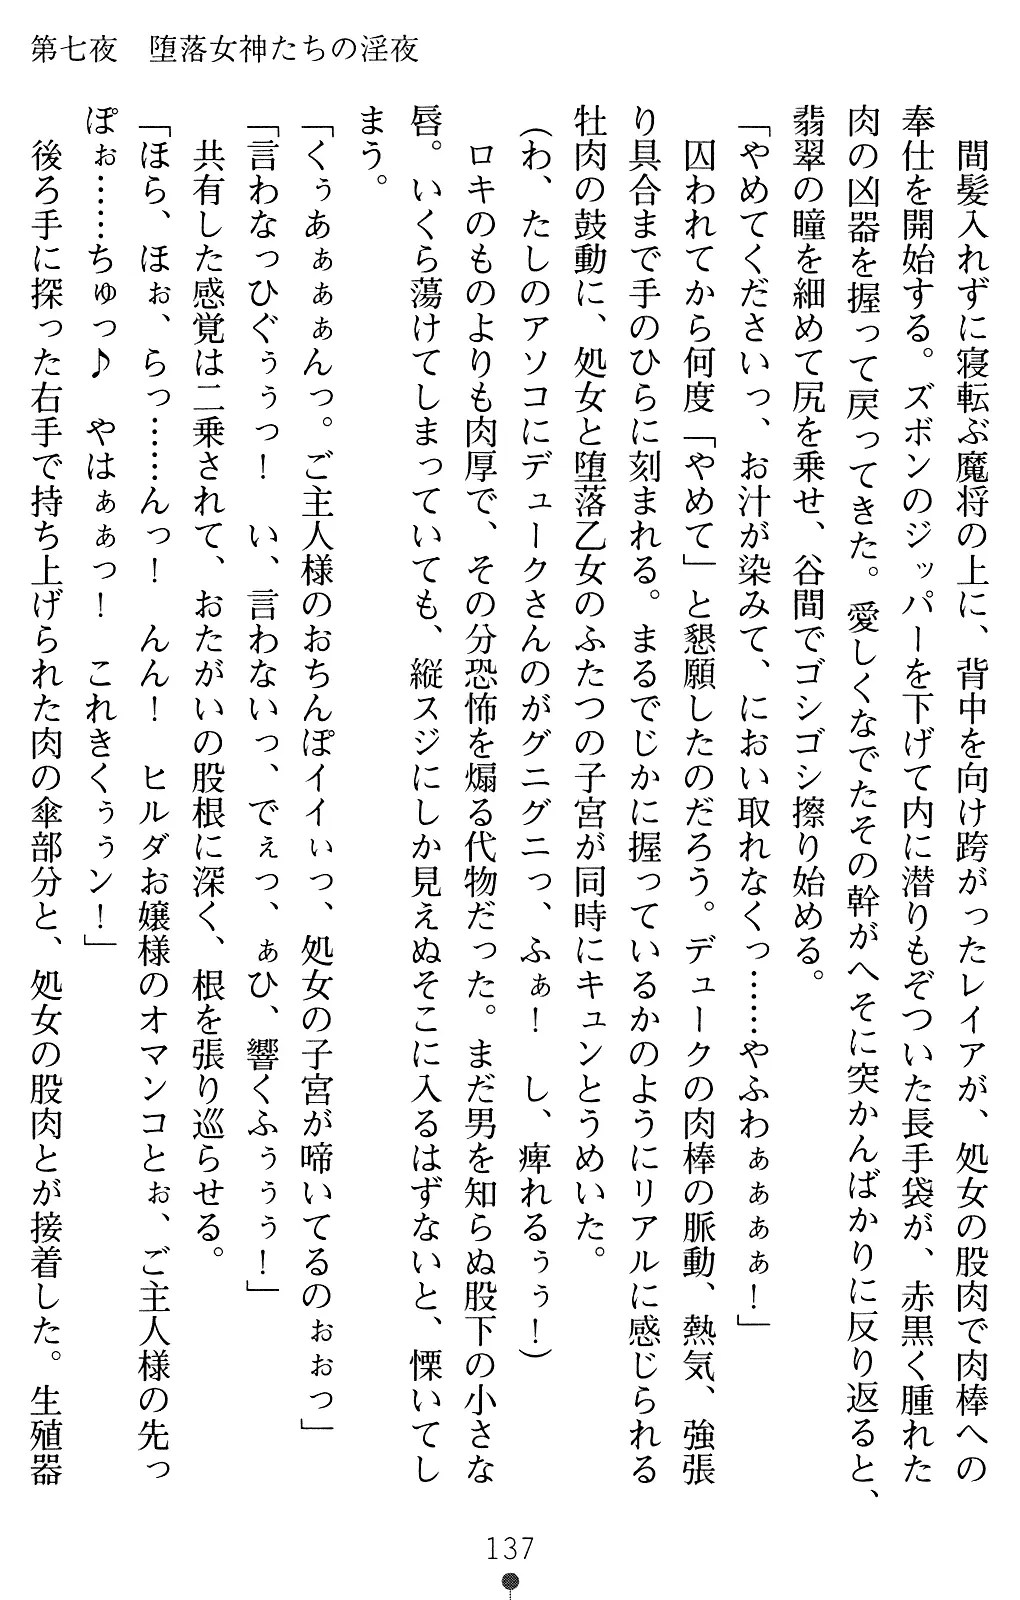 第七夜　堕落女神たちの淫夜
　間髪入れずに寝転ぶ魔将の上に、背中を向け跨がったレイアが、処女の股肉で肉棒への
奉仕を開始する。ズボンのジッパーを下げて内に潜りもぞついた長手袋が、赤黒く腫れた
肉の凶器を握って戻ってきた。愛しくなでたその幹がへそに突かんばかりに反り返ると、
翡翠の瞳を細めて尻を乗せ、谷間でゴシゴシ擦り始める。
「やめてくださいっ、お汁が染みて、におい取れなくっ……やふわぁぁぁぁ！」
　囚われてから何度「やめて」と懇願したのだろう。デュークの肉棒の脈動、熱気、強張
り具合まで手のひらに刻まれる。まるでじかに握っているかのようにリアルに感じられる
牡肉の鼓動に、処女と堕落乙女のふたつの子宮が同時にキュンとうめいた。
（わ、たしのアソコにデュークさんのがグニグニっ、ふぁ！　し、痺れるぅぅ！）
　ロキのものよりも肉厚で、その分恐怖を煽る代物だった。まだ男を知らぬ股下の小さな
唇。いくら蕩けてしまっていても、縦スジにしか見えぬそこに入るはずないと、慄いてし
まう。
「くぅあぁぁぁんっ。ご主人様のおちんぽイイぃっ、処女の子宮が啼いてるのぉぉっ」
「言わなっひぐぅぅっ！　い、言わないっ、でぇっ、ぁひ、響くふぅぅぅ！」
　共有した感覚は二乗されて、おたがいの股根に深く、根を張り巡らせる。
「ほら、ほぉ、らっ……んっ！　んん！　ヒルダお嬢様のオマンコとぉ、ご主人様の先っ
ぽぉ……ちゅっ♪　やはぁぁっ！　これきくぅぅン！」
　後ろ手に探った右手で持ち上げられた肉の傘部分と、処女の股肉とが接着した。生殖器
137